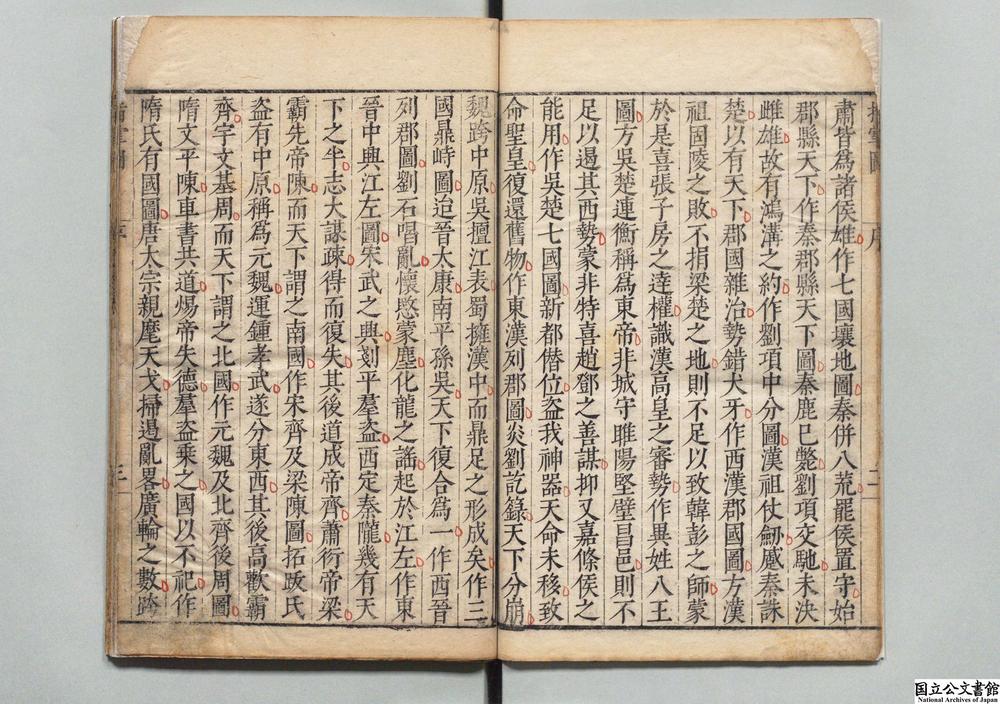 肅皆爲諸侯雄作七國壤地圖秦併八荒罷侯置守始
郡縣天下作秦郡縣天下圖秦鹿已斃劉項交馳未決
雌雄故有鴻溝之約作劉項中分圖漢祖仗劒蹙秦誅
楚以有天下郡國雜治勢錯犬牙作西漢郡國圖方漢
祖固陵之敗不捐梁楚之地則不足以致韓彭之師蒙
於是喜張子房之達權識漢高皇之審勢作異姓八王
圖方吳楚連衡稱爲東帝非城守睢陽堅壁昌邑則不
足以遏其西勢蒙非特喜趙鄧之善謀抑又嘉條侯之
能用作吳楚七國圖新都僣位盜我神器天命未移致
命聖皇復還舊物作東漢列郡圖炎劉訖錄天下分崩
魏跨中原吳擅江表蜀擁漢中而鼎足之形成矣作三
國鼎峙圖迨晉太康南平孫吳天下復合爲一作西晉
列郡圖劉石唱亂懷愍蒙塵化龍之謠起於江左作東
晉中興江左圖宋武之興剗平羣盜西定秦隴幾有天
下之半志大謀疎得而復失其後道成帝齊蕭衍帝梁
霸先帝陳而天下謂之南國作宋齊及梁陳圖拓跋氏
盜有中原稱爲元魏運鍾孝武遂分東西其後高歡霸
齊宇文基周而天下謂之北國作元魏及北齊後周圖
隋文平陳車書共道煬帝失德羣盜乘之國以不祀作
隋氏有國圖唐太宗親麾天戈掃遏亂畧廣輪之數跨
序
二
序
三
国立公文書館
National Archives of Japan